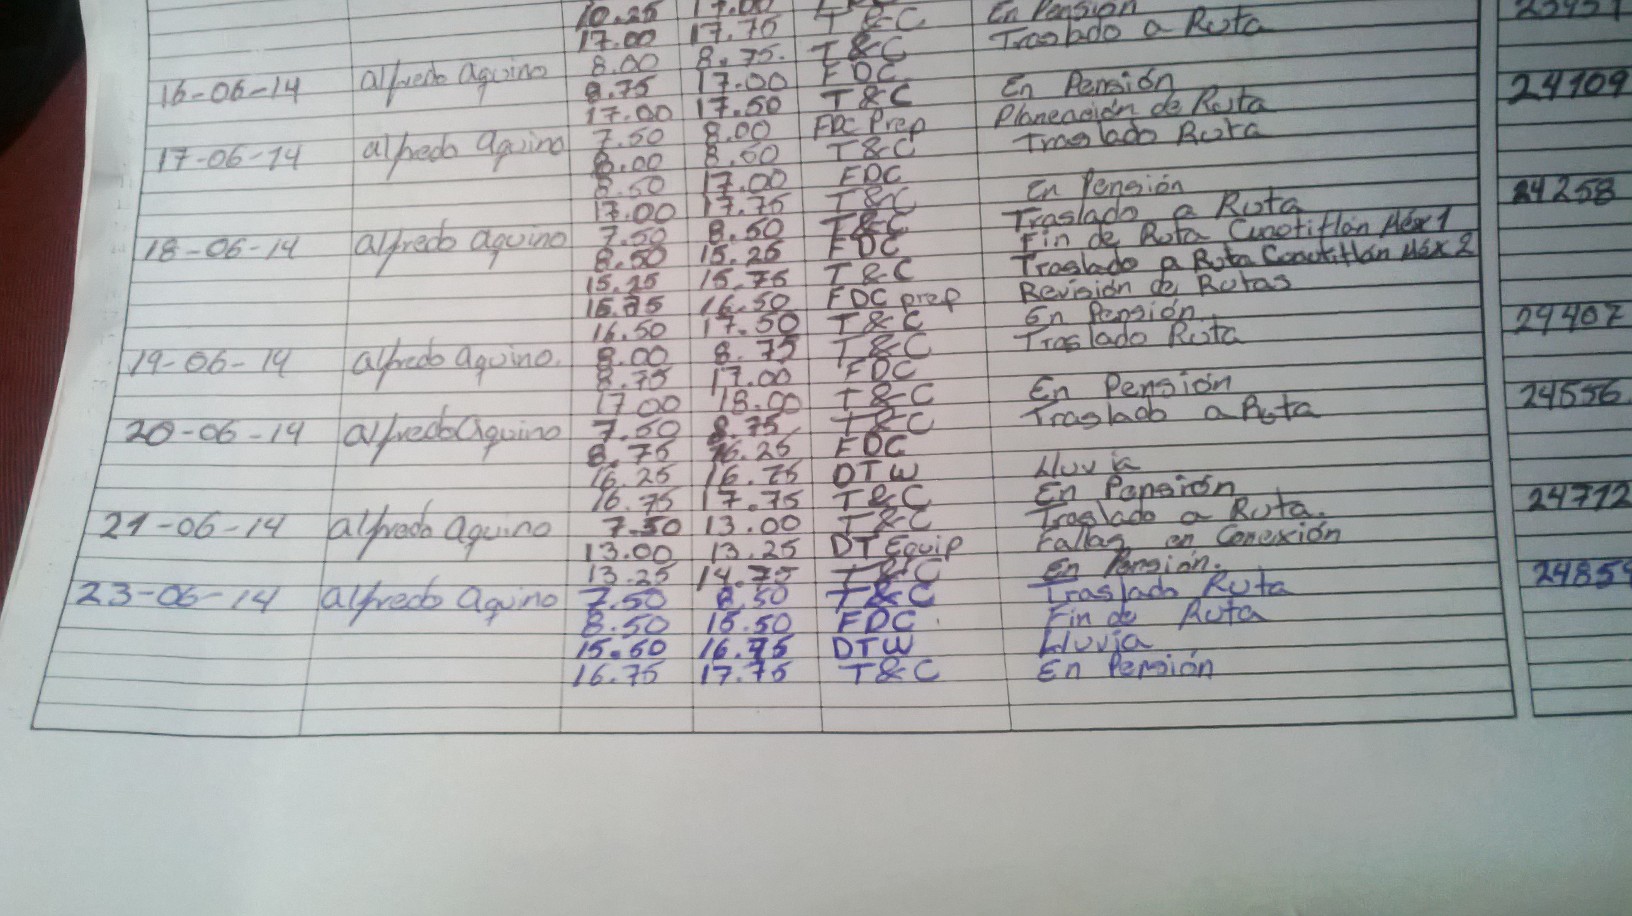 10.25 17.00
17.00 17.75 T&C En Pensión 23957
16-06-14 Alfredo Aquino 8.00 8.75 T&C Traslado a Ruta
8.75 17.00 FDC
17.00 17.50 T&C En Pensión 24109
17-06-14 Alfredo Aquino 7.50 8.00 FDC Prep Planeación de Ruta
8.00 8.50 T&C Traslado Ruta
8.50 17.00 FDC
17.00 17.75 T&C En Pensión 24258
18-06-14 Alfredo Aquino 7.50 8.50 T&C Traslado a Ruta
8.50 15.25 FDC Fin de Ruta Cuatitlán Méx 1
15.25 15.75 T&C Traslado a Ruta Coautitlán Méx 2
15.75 16.50 FDC prep Revisión de Rutas
16.50 17.50 T&C En Pensión 24407
19-06-14 Alfredo Aquino. 8.00 8.75 T&C Traslado Ruta
8.75 17.00 FDC
17.00 18.00 T&C En Pensión 24556
20-06-14 Alfredo Aquino 7.50 8.75 T&C Traslado a Ruta
8.75 16.25 FDC
16.25 16.75 DTW Lluvia
16.75 17.75 T&C En Pensión 24712
21-06-14 Alfredo Aquino 7.50 13.00 T&C Traslado a Ruta.
13.00 13.25 DT Equip Fallas en Conexión
13.25 14.75 T&C En Pensión. 24859
23-06-14 Alfredo Aquino 7.50 8.50 T&C Traslado Ruta
8.50 15.50 FDC Fin de Ruta
15.50 16.75 DTW Lluvia
16.75 17.75 T&C En Pensión